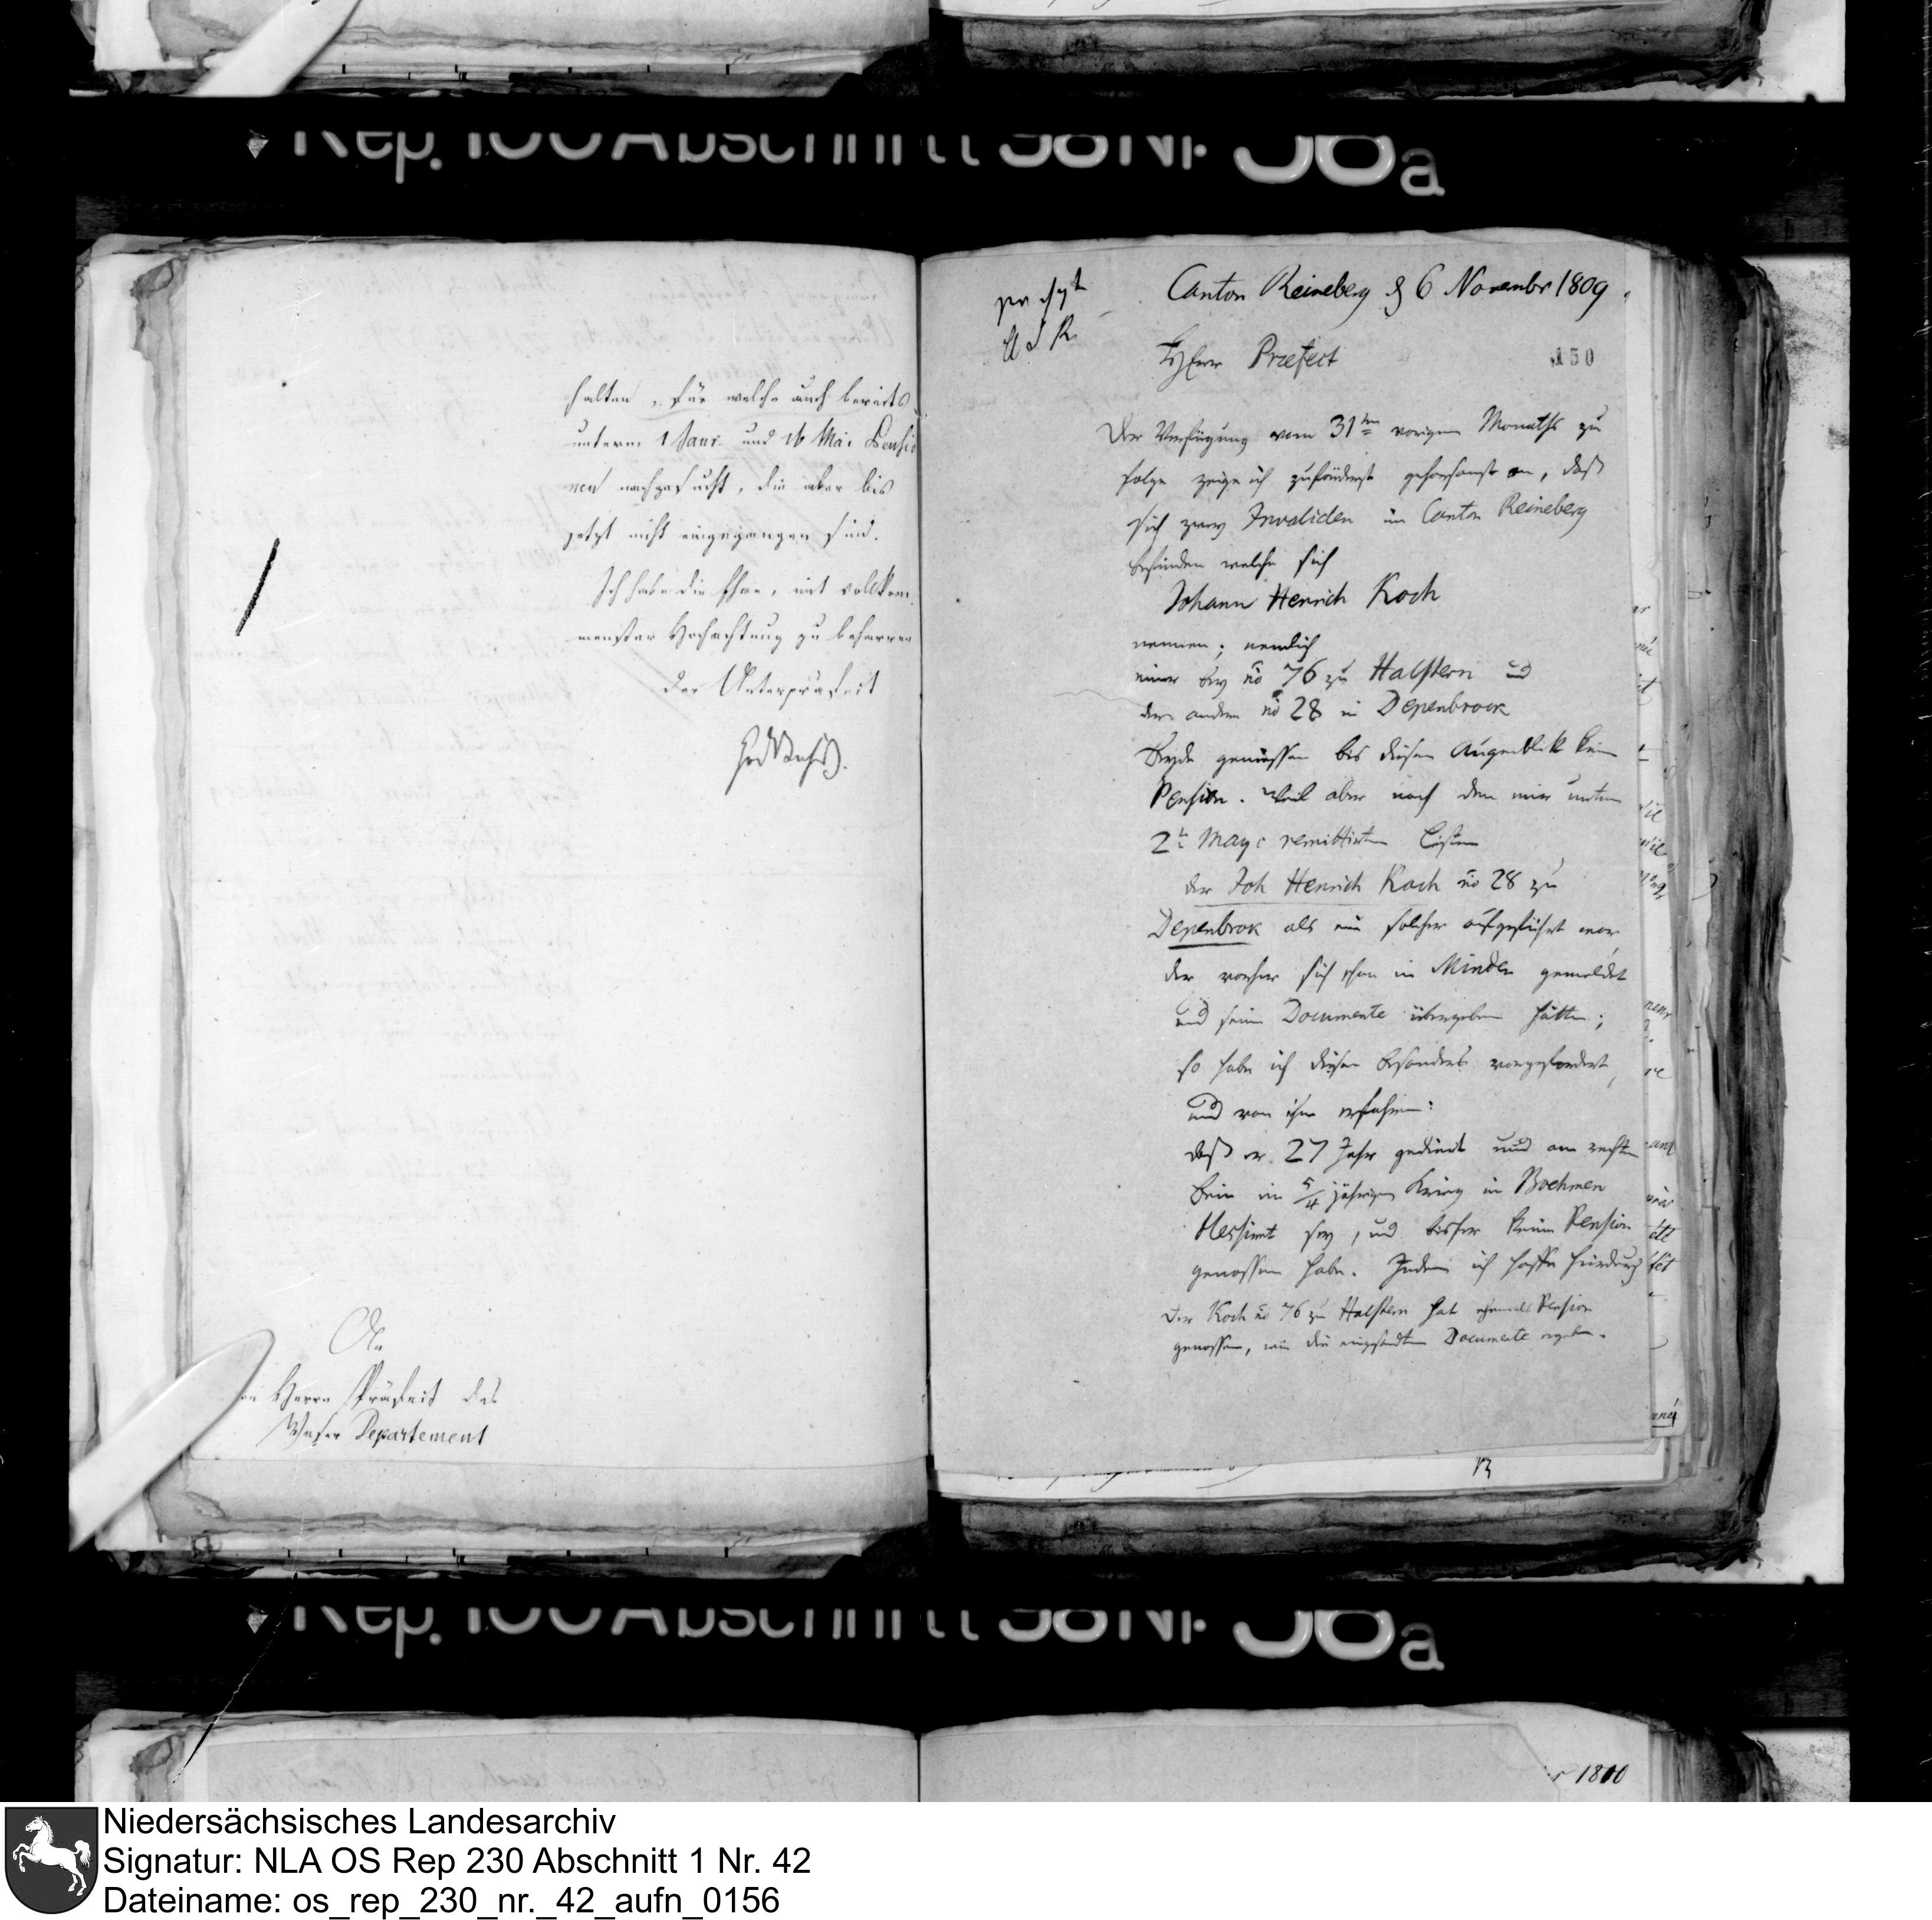 Rep. 100 Abschnitt 98 Nr. 38a
halten, für welche auch bereits
unterm 1 Janr. und 16 Mai Pensio
nen nachgesucht, die aber bis
jetzt nicht eingegangen sind.
Ich habe die Ehre, mit vollkom
menster Hochachtung zu beharren
Der Unterpräfect
An
Herrn Präfect des
Weser Departement
Canton Reineberg d 6 Novembr 1809.
Herr Praefect
150
Der Verfügung vom 31ten vorigen Monaths zu
folge zeige ich zuförderst gehorsamst an, daß
sich zwey Invaliden im Canton Reineberg
befinden welche sich
Johann Henrich Koch
nennen; nemlich
einer sub no 76 zu Halstern und
der andere no 28 in Depenbrock
Beyde geniessen bis diesen Augenblick kein
Pension. Weil aber nach dem mir unterm
2t May c remittirten Listen
der Joh Henrich Koch no 28 zu
Depenbrok als ein solcher aufgeführt war,
der vorher sich schon in Minden gemeldet
und seine Documente übergeben hätte;
so habe ich diesen besonders vorgefordert,
und von ihm erfahren:
daß er 27 Jahr gedient und am rechten
Bein im 5/4 jährigen Krieg in Boehmen
blessirt sey, und bisher keine Pension
genossen habe. Indem ich hoffe hierdurch
Der Koch no 76 zu Halstern hat ehemals Pension
genossen, wie die eingesandten Documente ergeben.
Rep. 100 Abschnitt 98 Nr. 38a
1810
Niedersächsisches Landesarchiv
Signatur: NLA OS Rep 230 Abschnitt 1 Nr. 42
Dateiname: os_rep_230_nr._42_aufn_0156